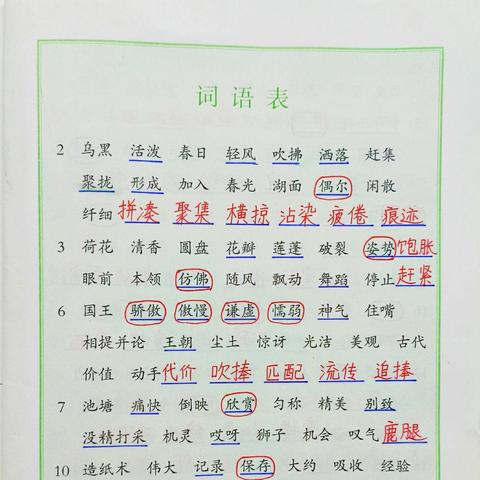 词语表
2 乌黑 活泼 春日 轻风 吹拂 洒落 赶集
聚拢 形成 加入 春光 湖面 偶尔 闲散
纤细 拼凑 聚集 横掠 沾染 疲倦 痕迹
3 荷花 清香 圆盘 花瓣 莲蓬 破裂 姿势 饱胀
眼前 本领 仿佛 随风 飘动 舞蹈 停止 赶紧
6 国王 骄傲 傲慢 谦虚 懦弱 神气 住嘴
相提并论 王朝 尘土 惊讶 光洁 美观 古代
价值 动手 代价 吹捧 匹配 流传 追捧
7 池塘 痛快 倒映 欣赏 匀称 精美 别致
没精打采 机灵 哎呀 狮子 机会 叹气 鹿腿
10 造纸术 伟大 记录 保存 大约 吸收 经验